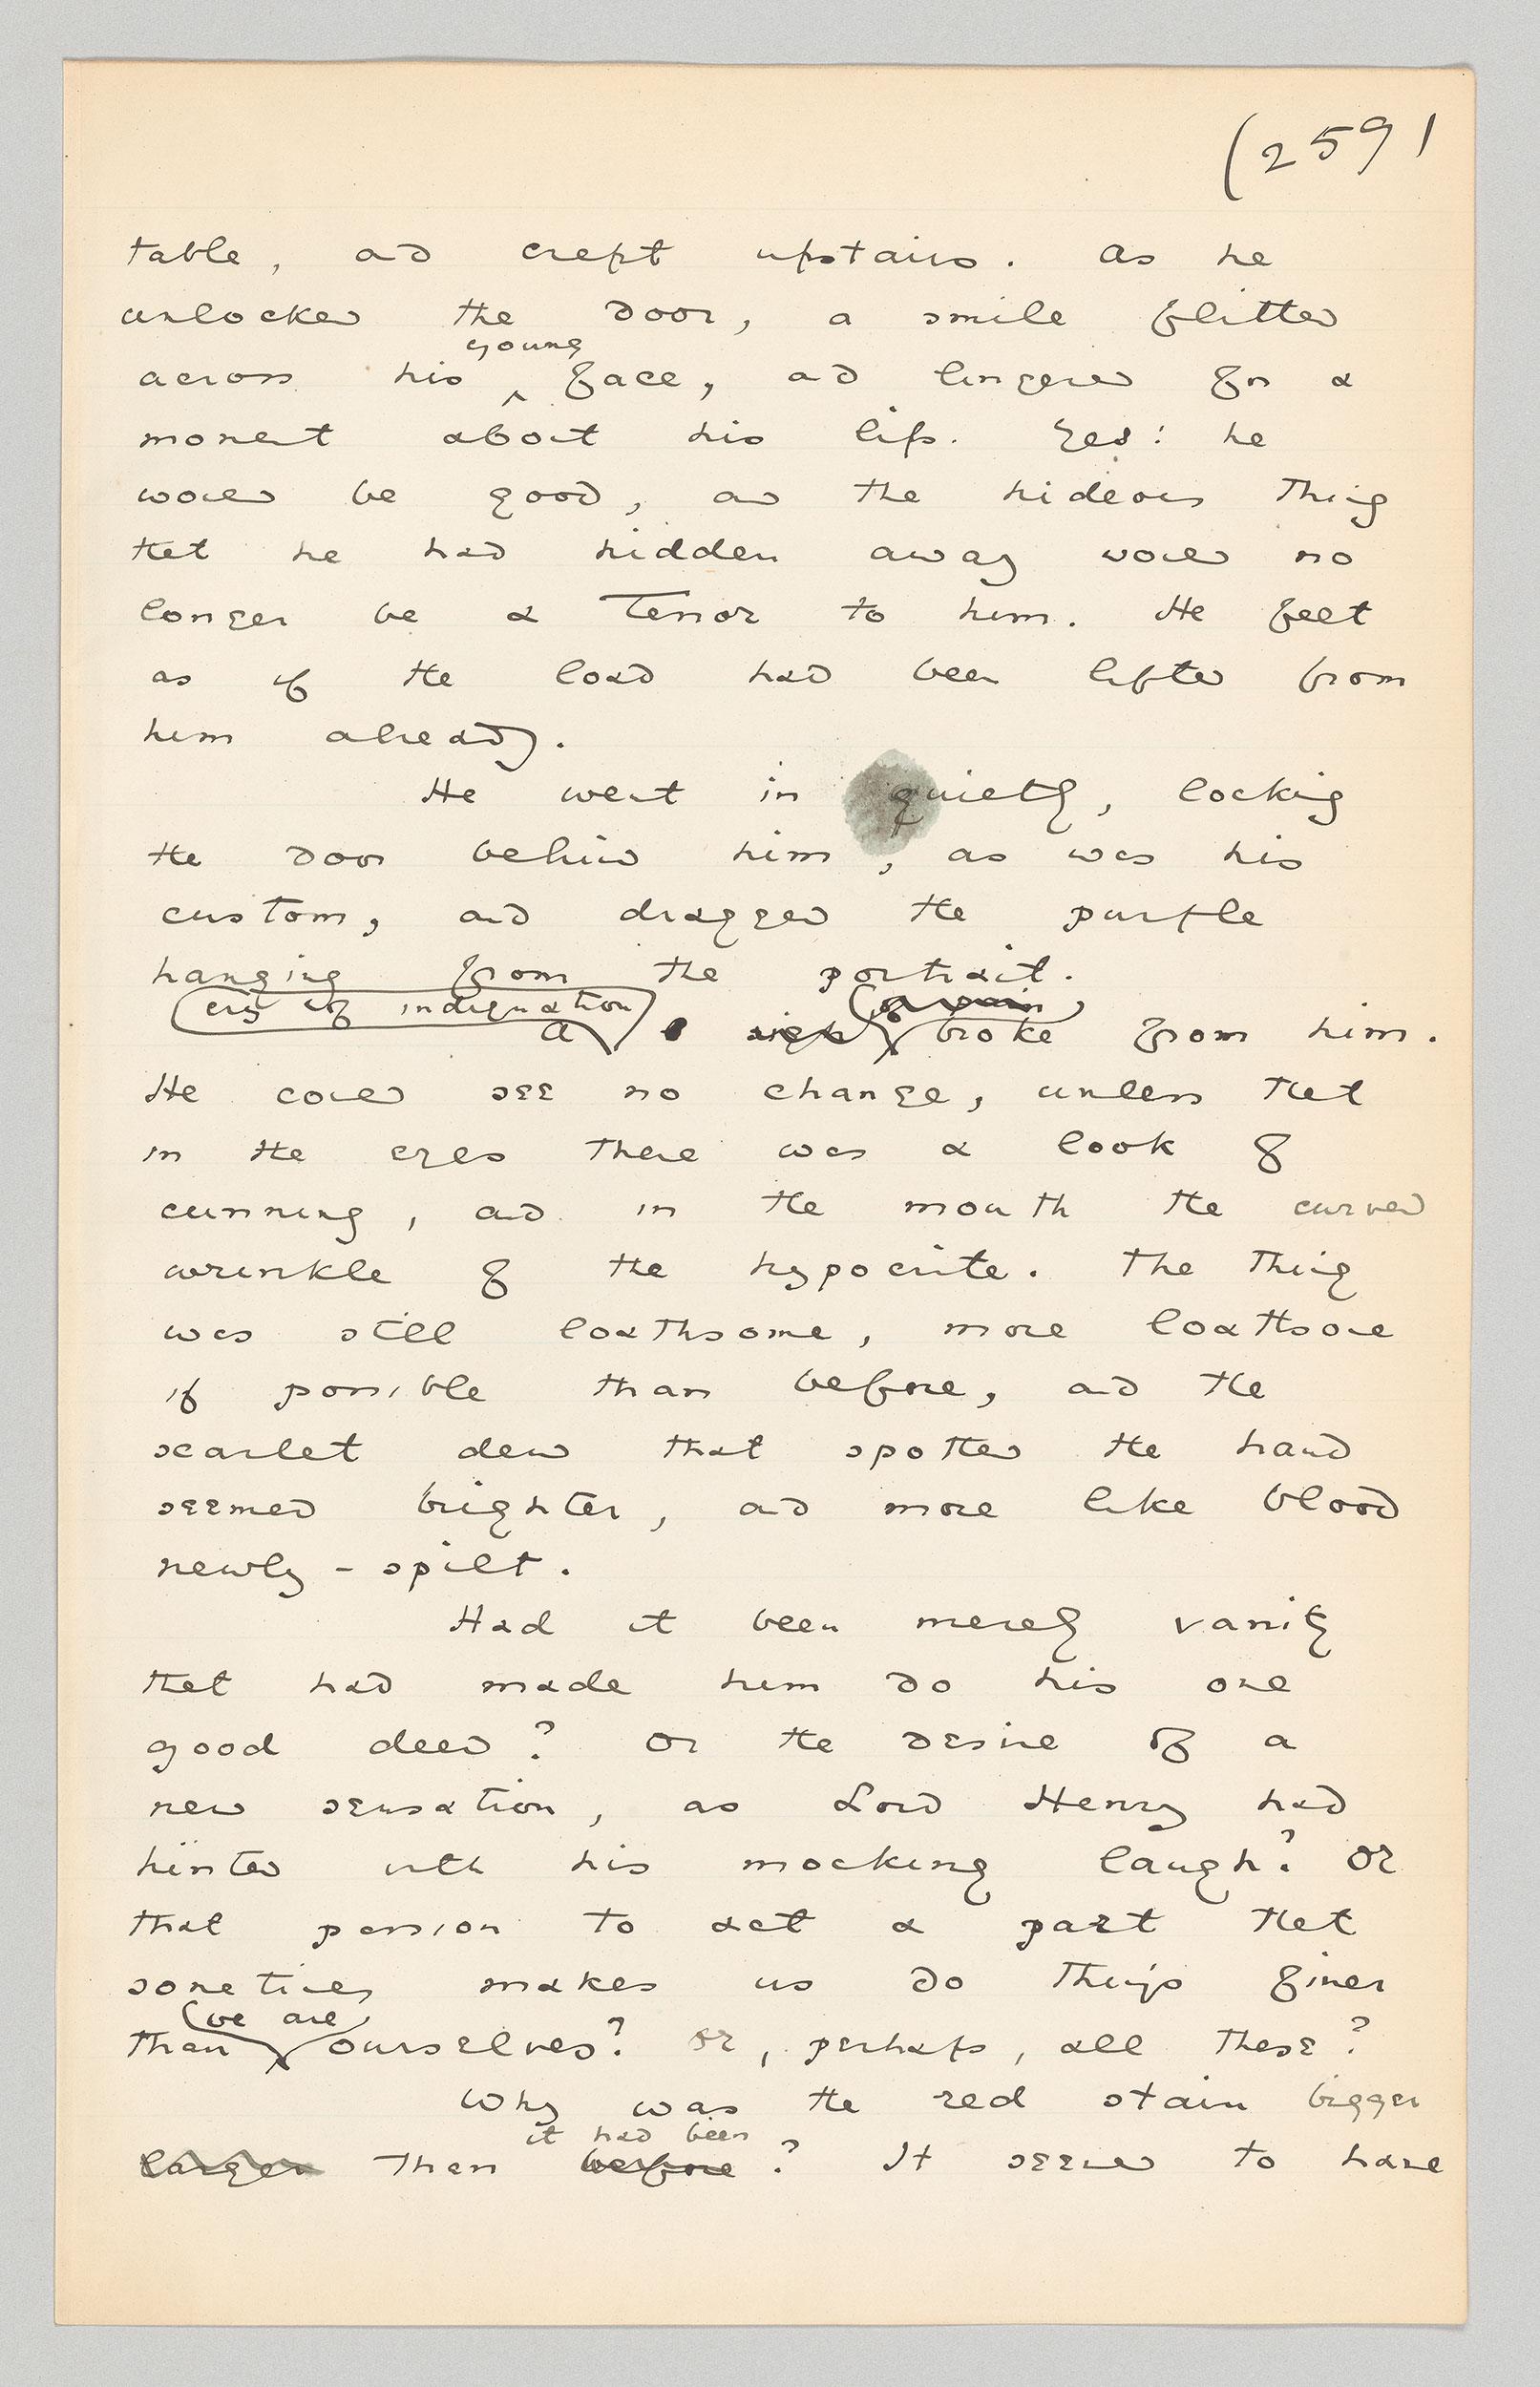 (259)
table, and crept upstairs. As he
unlocked the door, a smile flitted
young
across his ^ face, and lingered for a
moment about his lips. Yes: he
would be good, and the hideous thing
that he had hidden away would no
longer be a terror to him. He felt
as if the load had been lifted from
him already.
He went in quietly, locking
the door behind him, as was his
custom, and dragged the purple
hanging from the portrait.
cry of indignation
A sigh broke from him.
He could see no change, unless that
in the eyes there was a look of
cunning, and in the mouth the curved
wrinkle of the hypocrite. The thing
was still loathsome, more loathsome
if possible than before, and the
scarlet dew that spotted the hand
seemed brighter, and more like blood
newly-spilt.
Had it been merely vanity
that had made him do his one
good deed? Or the desire of a
new sensation, as Lord Henry had
hinted with his mocking laugh? Or
that passion to act a part that
sometimes makes us do things finer
we are
than ourselves? Or, perhaps, all these?
Why was the red stain bigger
it had been
larger than before? It seemed to have